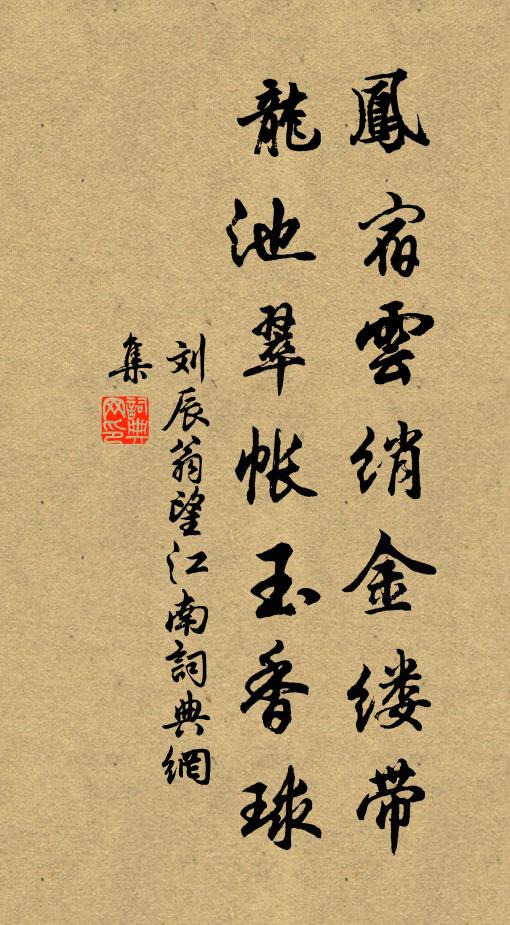 鳳宿雲綃金缕带
龍池翠帳玉香球
刘辰翁望江南詞典網
集
詞典
网印